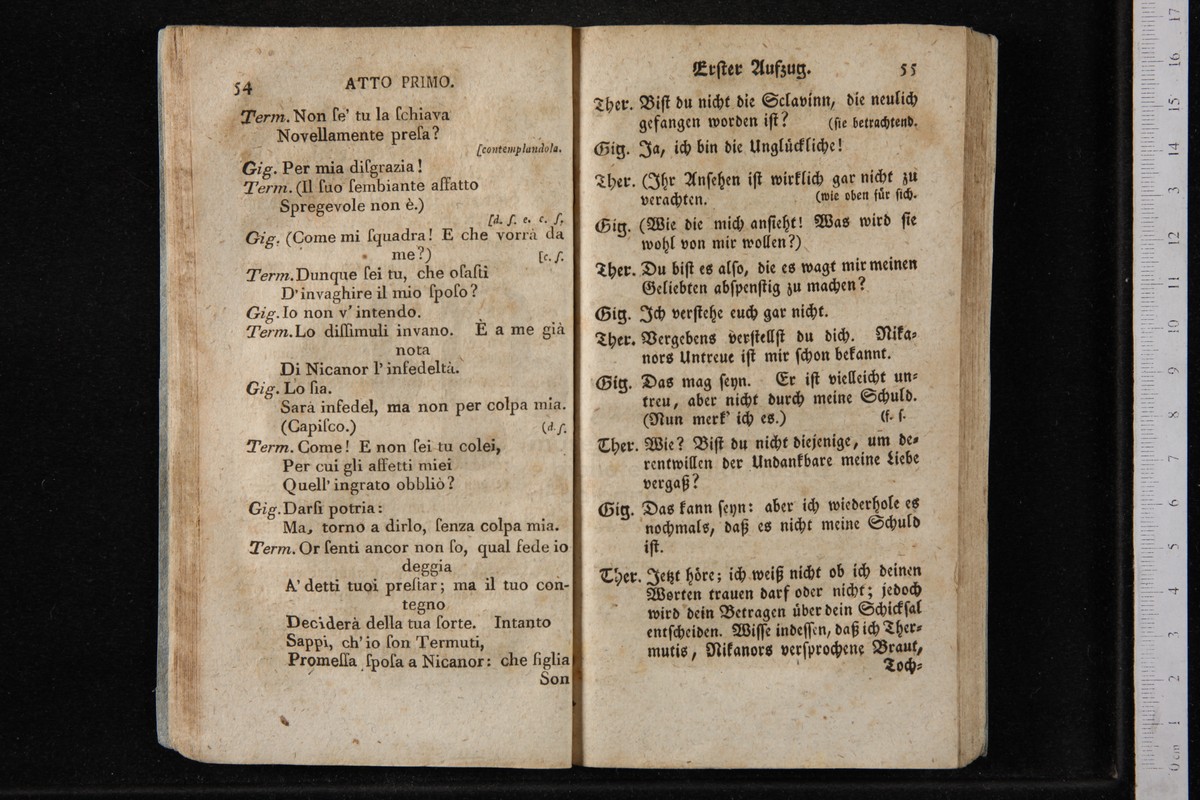 54 ATTO PRIMO.
Term. Non ſe' tu la ſchiava
Novellamente preſa?
[contemplandola.
Gig. Per mia diſgrazia!
Term. (Il ſuo ſembiante affatto
Spregevole non è.)
[d. ſ. e. c. ſ.
Gig. (Come mi ſquadra! E che vorrà da
me?) [c. ſ.
Term. Dunque ſei tu, che oſaſti
D'invaghire il mio ſpoſo?
Gig. Io non v'intendo.
Term. Lo diſſimuli invano. È a me già
nota
Di Nicanor l'infedeltà.
Gig. Lo ſia.
Sarà infedel, ma non per colpa mia.
(Capiſco.) (d. ſ.
Term. Come! E non ſei tu colei,
Per cui gli affetti miei
Quell'ingrato obbliò?
Gig. Darſi potria:
Ma, torno a dirlo, ſenza colpa mia.
Term. Or ſenti ancor non ſo, qual fede io
deggia
A' detti tuoi preſtar; ma il tuo con-
tegno
Deciderà della tua ſorte. Intanto
Sappi, ch'io ſon Termuti,
Promeſſa ſpoſa a Nicanor: che figlia
Son
Erſter Aufzug. 55
Ther. Biſt du nicht die Sclavinn, die neulich
gefangen worden iſt? (ſie betrachtend.
Gig. Ja, ich bin die Unglückliche!
Ther. (Ihr Anſehen iſt wirklich gar nicht zu
verachten. (wie oben für ſich.
Gig. (Wie die mich anſieht! Was wird ſie
wohl von mir wollen?)
Ther. Du biſt es alſo, die es wagt mir meinen
Geliebten abſpenſtig zu machen?
Gig. Ich verſtehe euch gar nicht.
Ther. Vergebens verſtellſt du dich. Nika-
nors Untreue iſt mir ſchon bekannt.
Gig. Das mag ſeyn. Er iſt vielleicht un-
treu, aber nicht durch meine Schuld.
(Nun merk' ich es.) (f. ſ.
Ther. Wie? Biſt du nicht diejenige, um de-
rentwillen der Undankbare meine Liebe
vergaß?
Gig. Das kann ſeyn: aber ich wiederhole es
nochmals, daß es nicht meine Schuld
iſt.
Ther. Jetzt höre; ich weiß nicht ob ich deinen
Worten trauen darf oder nicht; jedoch
wird dein Betragen über dein Schickſal
entſcheiden. Wiſſe indeſſen, daß ich Ther-
mutis, Nikanors verſprochene Braut,
Toch-
0 cm 1 2 3 4 5 6 7 8 9 10 11 12 13 14 15 16 17